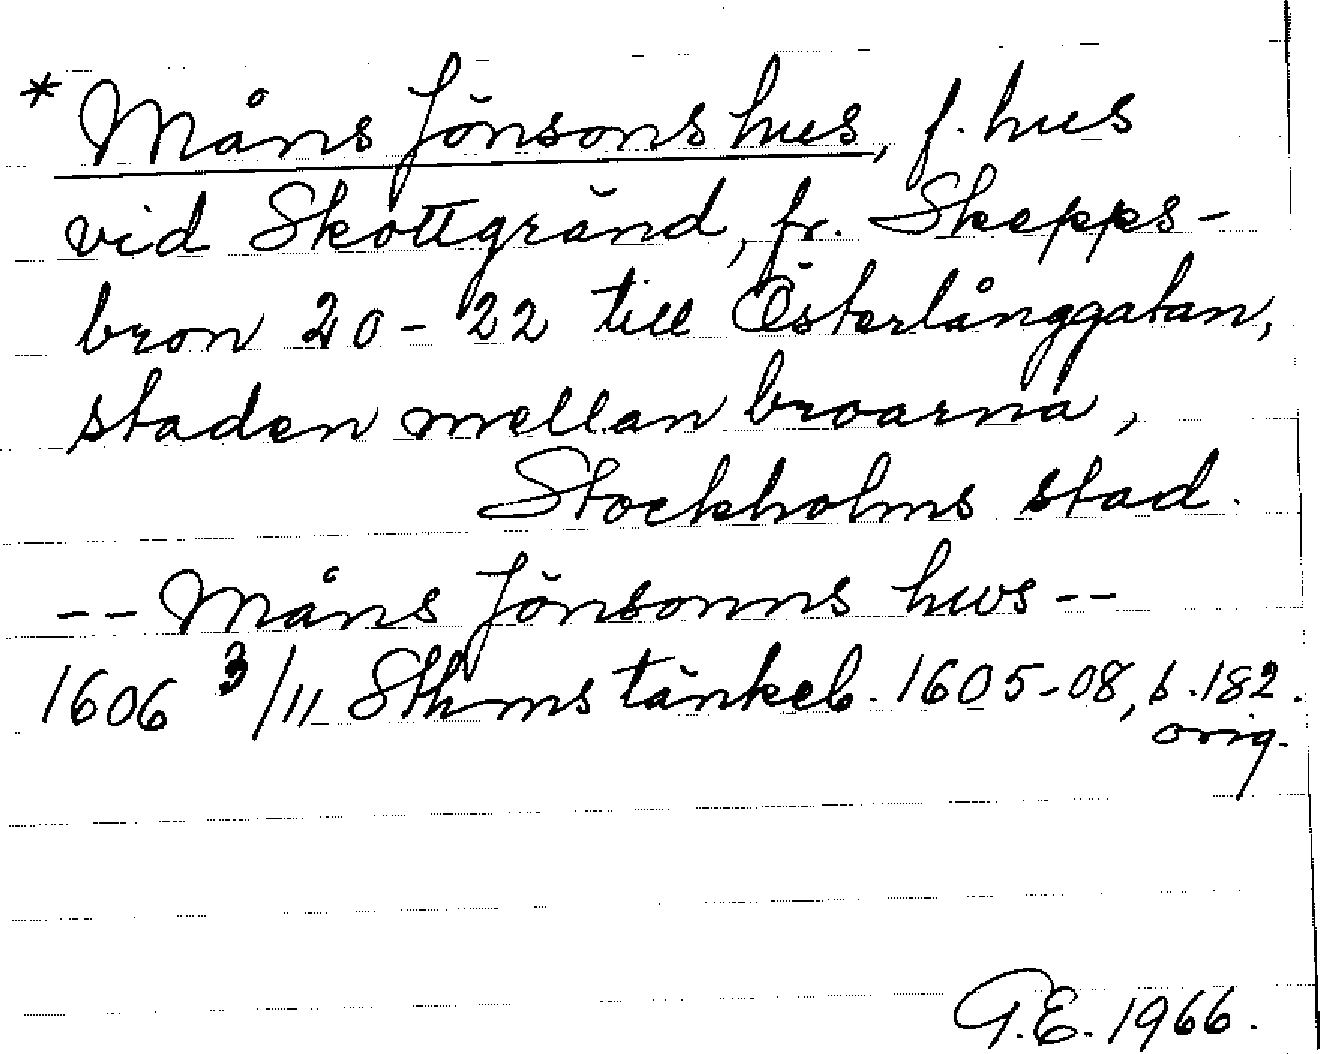 * Måns Jönsons hus, f. hus
vid Skottgränd, fr. Skepps-
bron 20-22 till Österlånggatan,
staden mellan broarna,
Stockholms stad.
-- Måns Jönsonns hws --
1606 3/11 Sthms tänkeb. 1605-08, s. 182.
orig.
G.E. 1966.